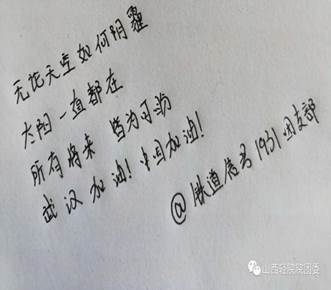 无论天空如何阴霾
太阳一直都在
所有将来 皆为可盼
武汉加油！中国加油！
@铁道信号1931团支部
山西轻院院团委